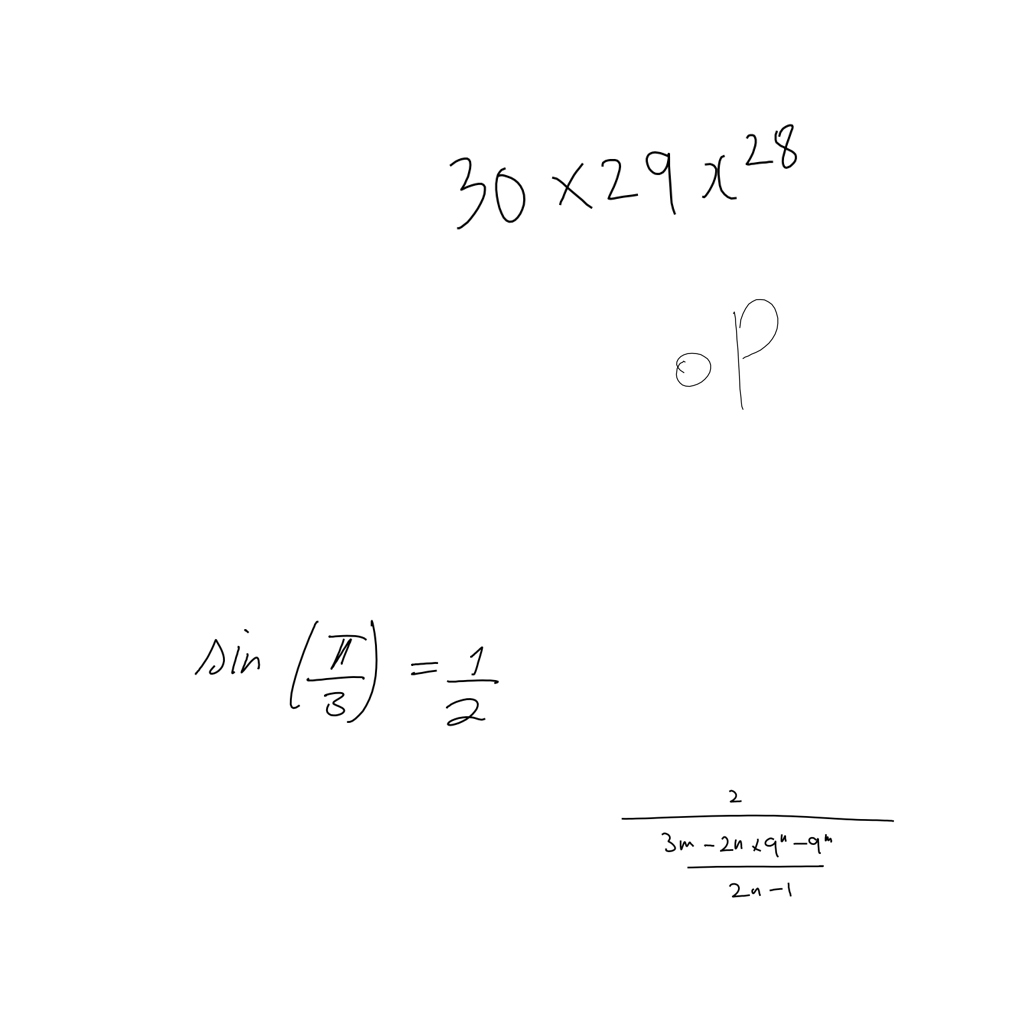 30 × 29 x^28
oP
sin (π/3) = 1/2
2
3m - 2n × 9^n - 9^m
2n - 1